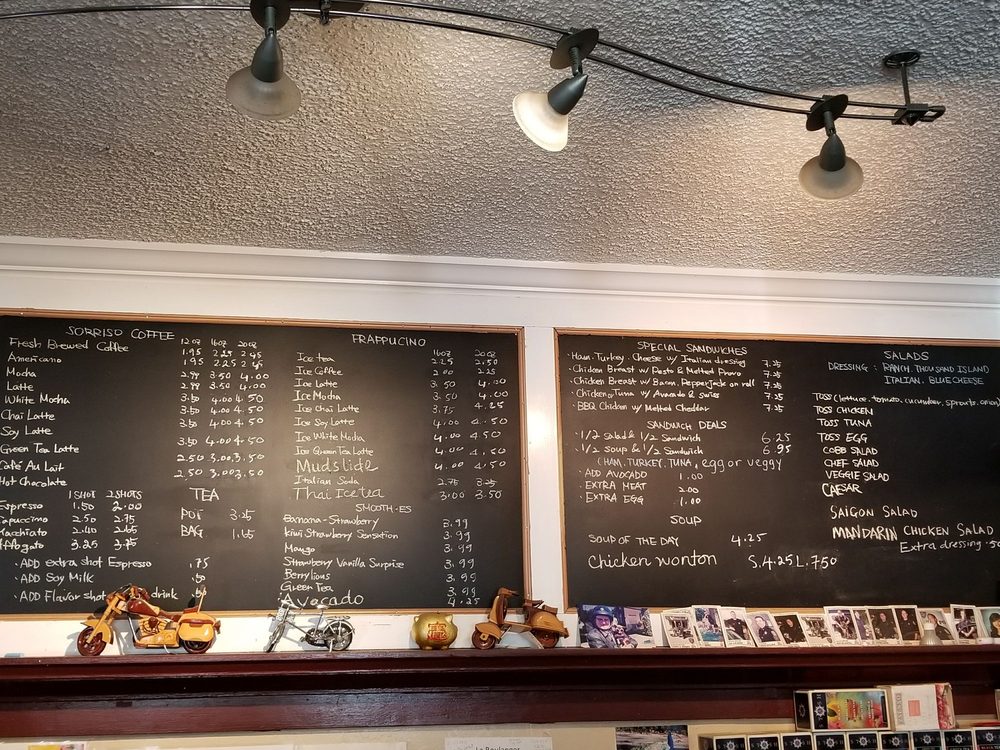 SORRISO COFFEE
12oz 16oz 20oz
Fresh Brewed Coffee 1.95 2.25 2.45
Americano 1.95 2.25 2.45
Mocha 2.99 3.50 4.00
Latte 2.99 3.50 4.00
White Mocha 3.50 4.00 4.50
Chai Latte 3.50 4.00 4.50
Soy Latte 3.50 4.00 4.50
Green Tea Latte 3.50 4.00 4.50
Café Au Lait 2.50 3.00 3.50
Hot Chocolate 2.50 3.00 3.50
1 SHOT 2 SHOTS
Espresso 1.50 2.00
Cappuccino 2.50 2.75
Macchiato 2.40 2.65
Affogato 3.25 3.75
. ADD extra shot Espresso .75
. ADD Soy Milk .50
. ADD Flavor shot drink
TEA
POT 3.25
BAG 1.65
FRAPPUCINO
16oz 20oz
Ice tea 2.25 2.50
Ice Coffee 2.00
Ice Latte 3.50 4.00
Ice Mocha 3.50 4.00
Ice Chai Latte 3.75 4.25
Ice Soy Latte 4.00 4.50
Ice White Mocha 4.00 4.50
Ice Green Tea Latte 4.00 4.50
Mudslide 4.00 4.50
Italian Soda 2.75 3.25
Thai Ice tea 3.00 3.50
SMOOTH-ES
Banana-Strawberry 3.99
Kiwi Strawberry Sensation 3.99
Mango 3.99
Strawberry Vanilla Surprise 3.99
Berrylious 3.95
Green Tea 3.99
Avocado 4.25
SPECIAL SANDWICHES
. Ham. Turkey. Cheese w/ Italian dressing 7.25
. Chicken Breast w/ Pesto & Melted Provo 7.25
. Chicken Breast w/ Bacon, Pepperjack on roll 7.25
. Chicken or Tuna w/ Avocado & Swiss 7.25
. BBQ Chicken w/ Melted Cheddar 7.25
SANDWICH DEALS
. 1/2 Salad & 1/2 Sandwich 6.25
. 1/2 Soup & 1/2 Sandwich 6.95
(HAM, TURKEY, TUNA, egg or veggy
. ADD AVOCADO 1.00
. EXTRA MEAT 2.00
. EXTRA EGG 1.00
SOUP
SOUP OF THE DAY 4.25
Chicken wonton S. 4.25 L. 7.50
SALADS
DRESSING : RANCH. THOUSAND ISLAND
ITALIAN. BLUE CHEESE
TOSS (lettuce, tomato, cucumber, sprouts, onion)
TOSS CHICKEN
TOSS TUNA
TOSS EGG
COBB SALAD
CHEF SALAD
VEGGIE SALAD
CAESAR
SAIGON SALAD
MANDARIN CHICKEN SALAD
Extra dressing .50
La Boulanger